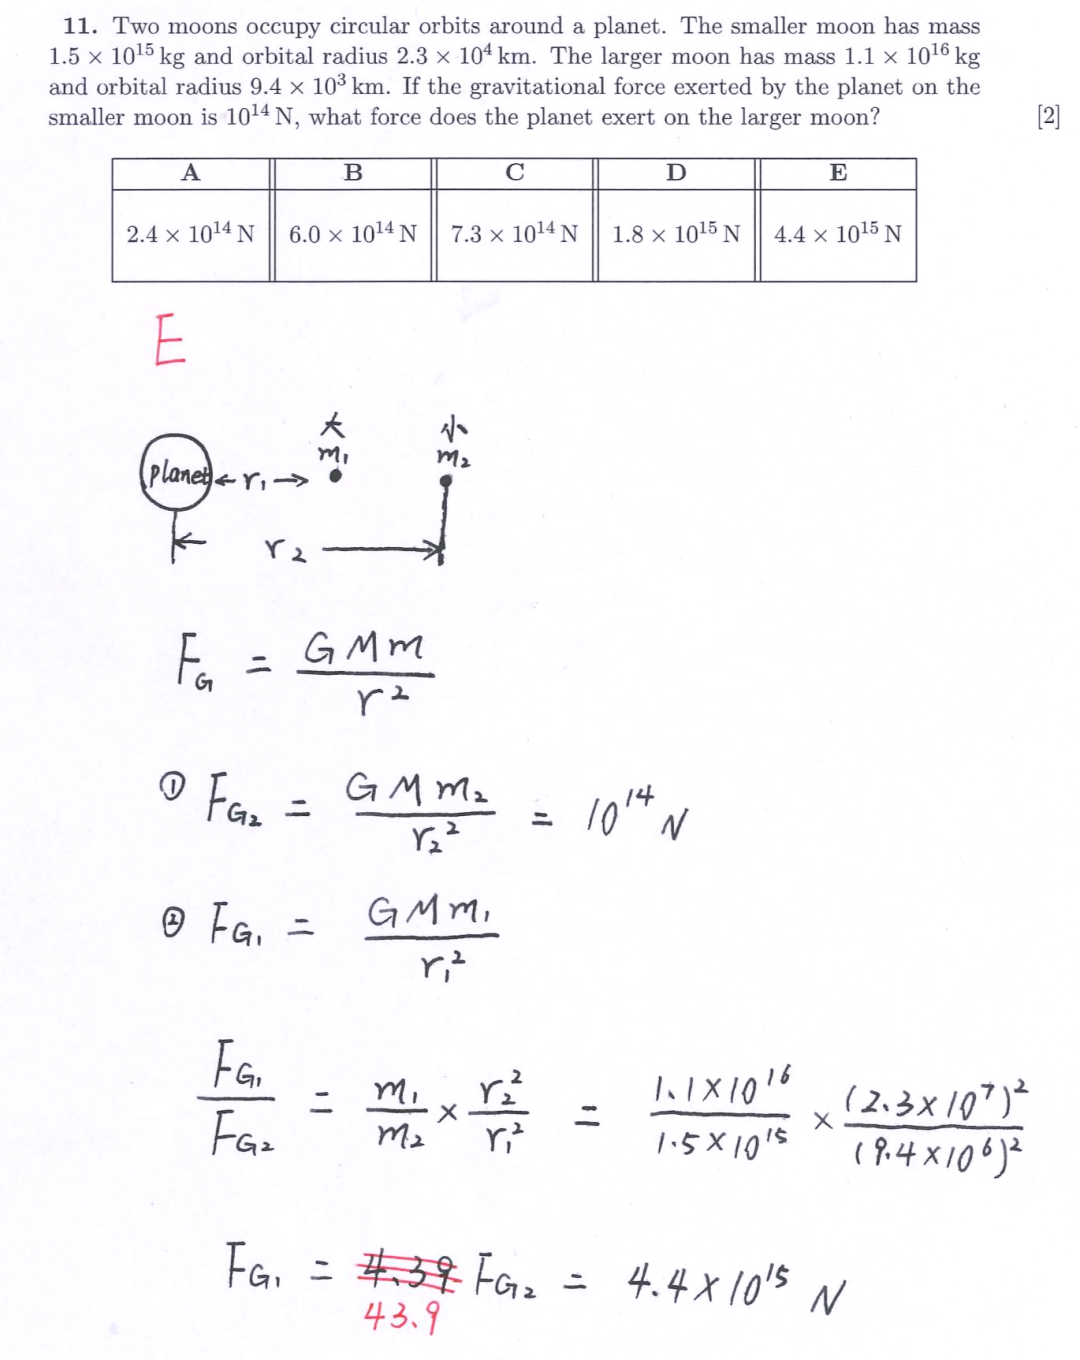 11. Two moons occupy circular orbits around a planet. The smaller moon has mass
1.5 × 10¹⁵ kg and orbital radius 2.3 × 10⁴ km. The larger moon has mass 1.1 × 10¹⁶ kg
and orbital radius 9.4 × 10³ km. If the gravitational force exerted by the planet on the
smaller moon is 10¹⁴ N, what force does the planet exert on the larger moon? [2]
A B C D E
2.4 × 10¹⁴ N 6.0 × 10¹⁴ N 7.3 × 10¹⁴ N 1.8 × 10¹⁵ N 4.4 × 10¹⁵ N
E
大 小
m₁ m₂
planet ← r₁ →
r₂
F_G = GMm / r²
① F_G₂ = GMm₂ / r₂² = 10¹⁴ N
② F_G₁ = GMm₁ / r₁²
F_G₁ / F_G₂ = m₁ / m₂ × r₂² / r₁² = 1.1×10¹⁶ / 1.5×10¹⁵ × (2.3×10⁷)² / (9.4×10⁶)²
F_G₁ = 4.39 F_G₂ = 4.4×10¹⁵ N
43.9